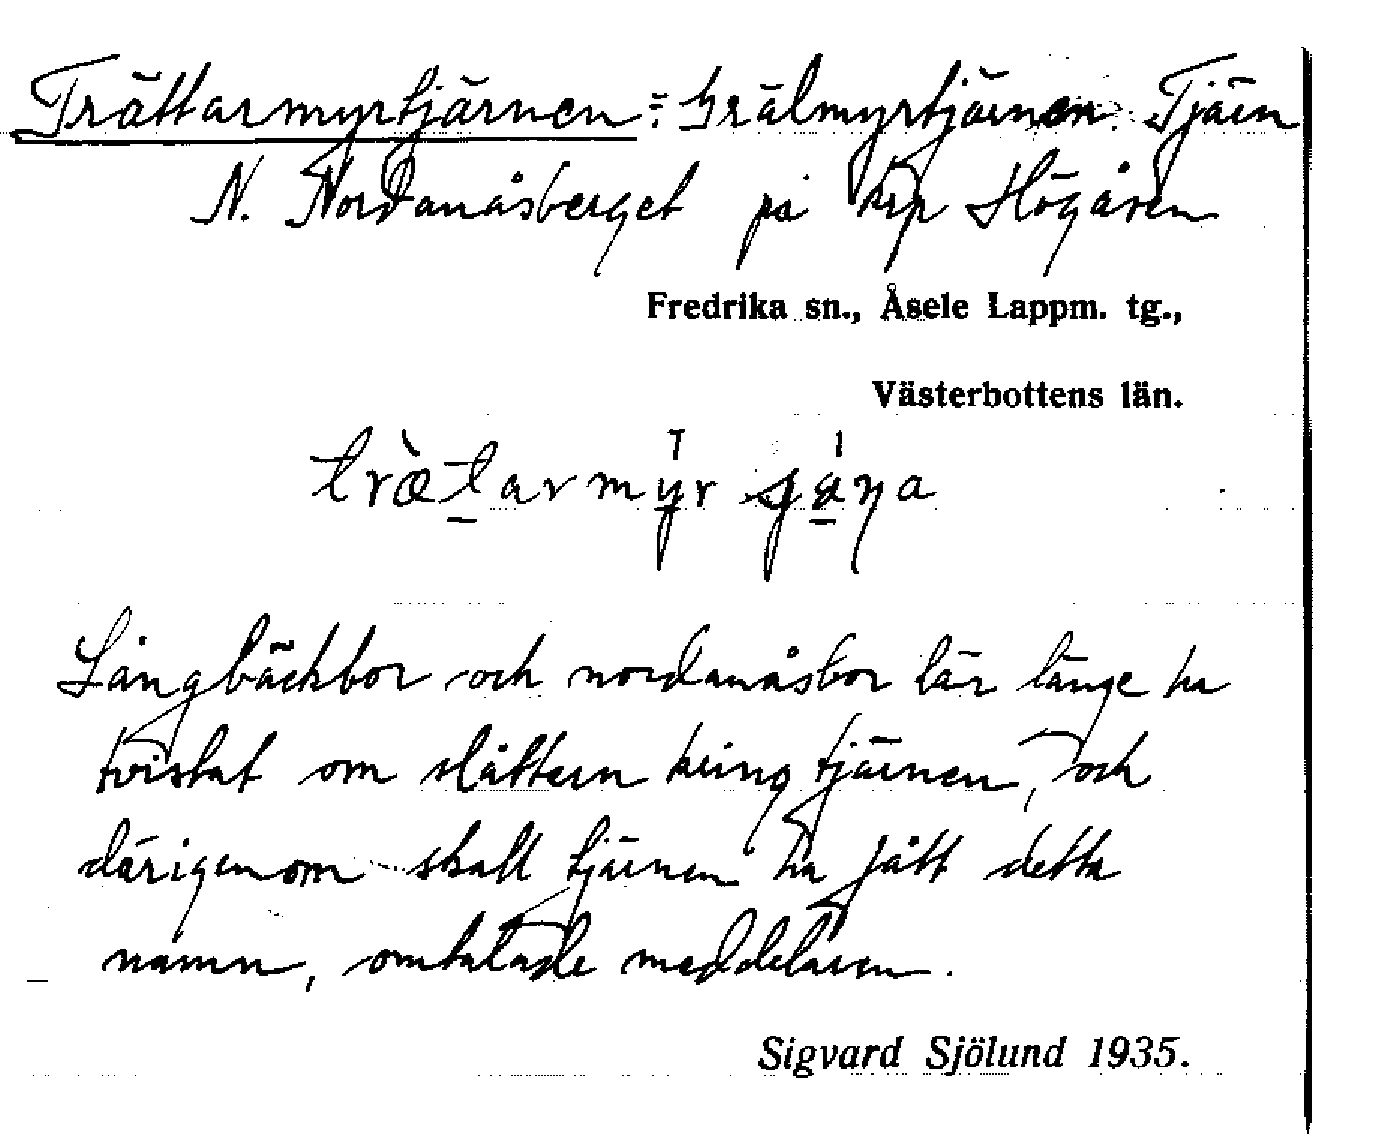 Trättarmyrtjärnen = Grälmyrtjärnen. Tjärn
N. Nordanåsberget på krp Högåsen
Fredrika sn., Åsele Lappm. tg.,
Västerbottens län.
Långbäckbor och nordanåsbor lär länge ha
tvistat om slåttern kring tjärnen, och
därigenom skall tjärnen ha fått detta
namn, omtalade meddelaren.
Sigvard Sjölund 1935.